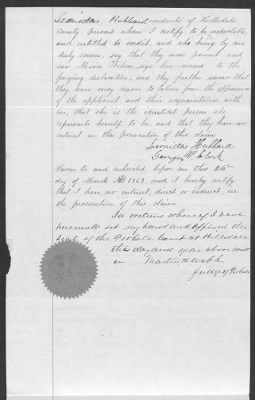 Leonidas Hubbard residents of Hillsdale
County, persons whom I certify to be respectable
and entitled to credit, and who being by me
duly sworn, say that they were present and
saw Maria Wilson sign her name to the
forgoing declaration; and they further swear that
they have every reason to believe from the appearance
of the applicant, and their acquaintance with
her, that she is the identical person she
represents herself to be, and that they have no
interest in the prosecution of this claim
Leonidas Hubbard
George W. Clark
Sworn to and subscribed before me this
day of March AD 1883 and I hereby certify
that I have no interest, direct or indirect in
the prosecution of this claim
In witness whereof I have
hereunto set my hand and affixed the
seal of the Probate Court at Hillsdale
this day and year above writt
en
Judge of Probate